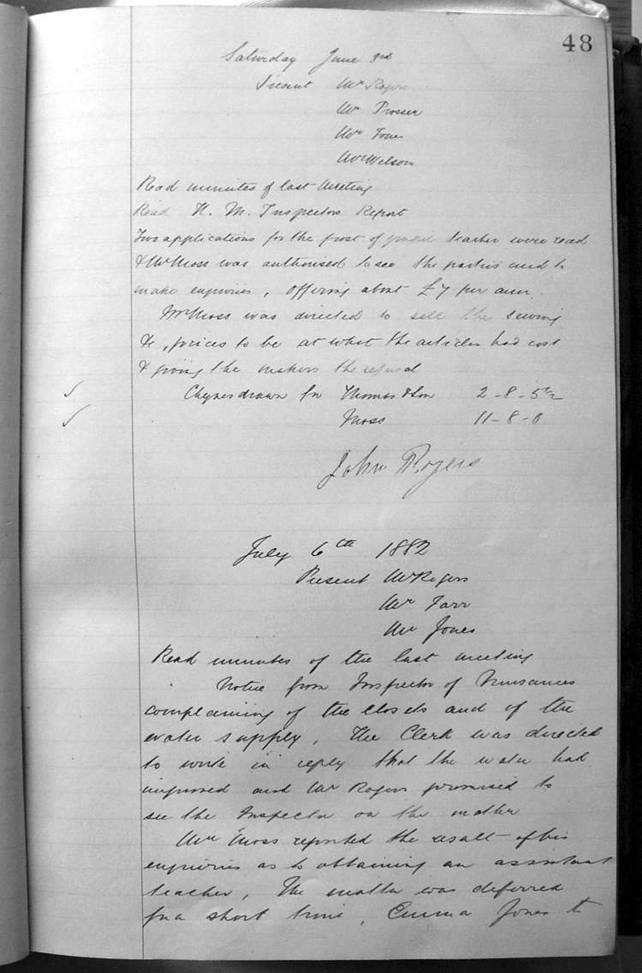 48
Saturday June 3rd
Present Mr Rogers
Mr Prosser
Mr Jones
Mr Wilson
Read minutes of last meeting
Read H. M. Inspectors Report
Two applications for the post of teacher were read
& Mr Moss was authorised to see the parties and to
make enquiries, offering about £7 per ann.
Mr Moss was directed to sell the sewing
&c, prices to be at what the articles had cost
& giving the makers the refusal
Cheques drawn for Thomas & Son 2-8-5½
Moss 11-8-0
John Rogers
July 6th 1882
Present Mr Rogers
Mr Farr
Mr Jones
Read minutes of the last meeting
Notice from Inspector of Nuisances
complaining of the closets and of the
water supply. The Clerk was directed
to write in reply that the water had
improved and Mr Rogers promised to
see the Inspector on the matter
Mr Moss reported the result of his
enquiries as to obtaining an assistant
teacher, The matter was deferred
for a short time, Emma Jones to